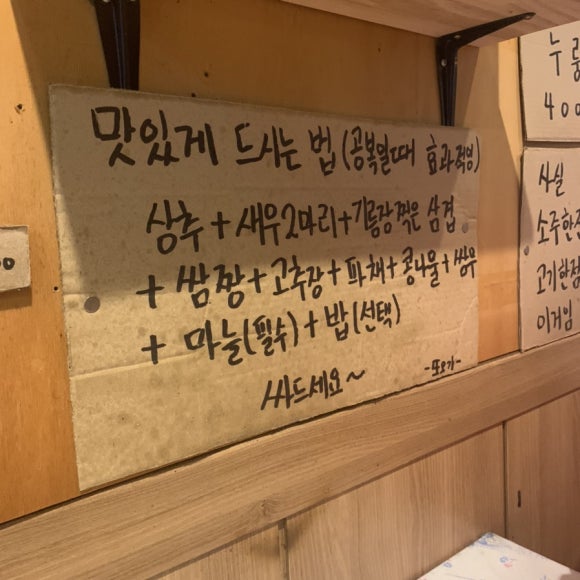 맛있게 드시는 법 (공복일때 효과적임)
상추 + 새우2마리 + 기름장찍은 삼겹
+ 쌈장 + 고추장 + 파채 + 콩나물 + 쌈무
+ 마늘(필수) + 밥(선택)
싸드세요~
-또오가-
00
누룽
400
사실
소주한잔
고기한점
이거임